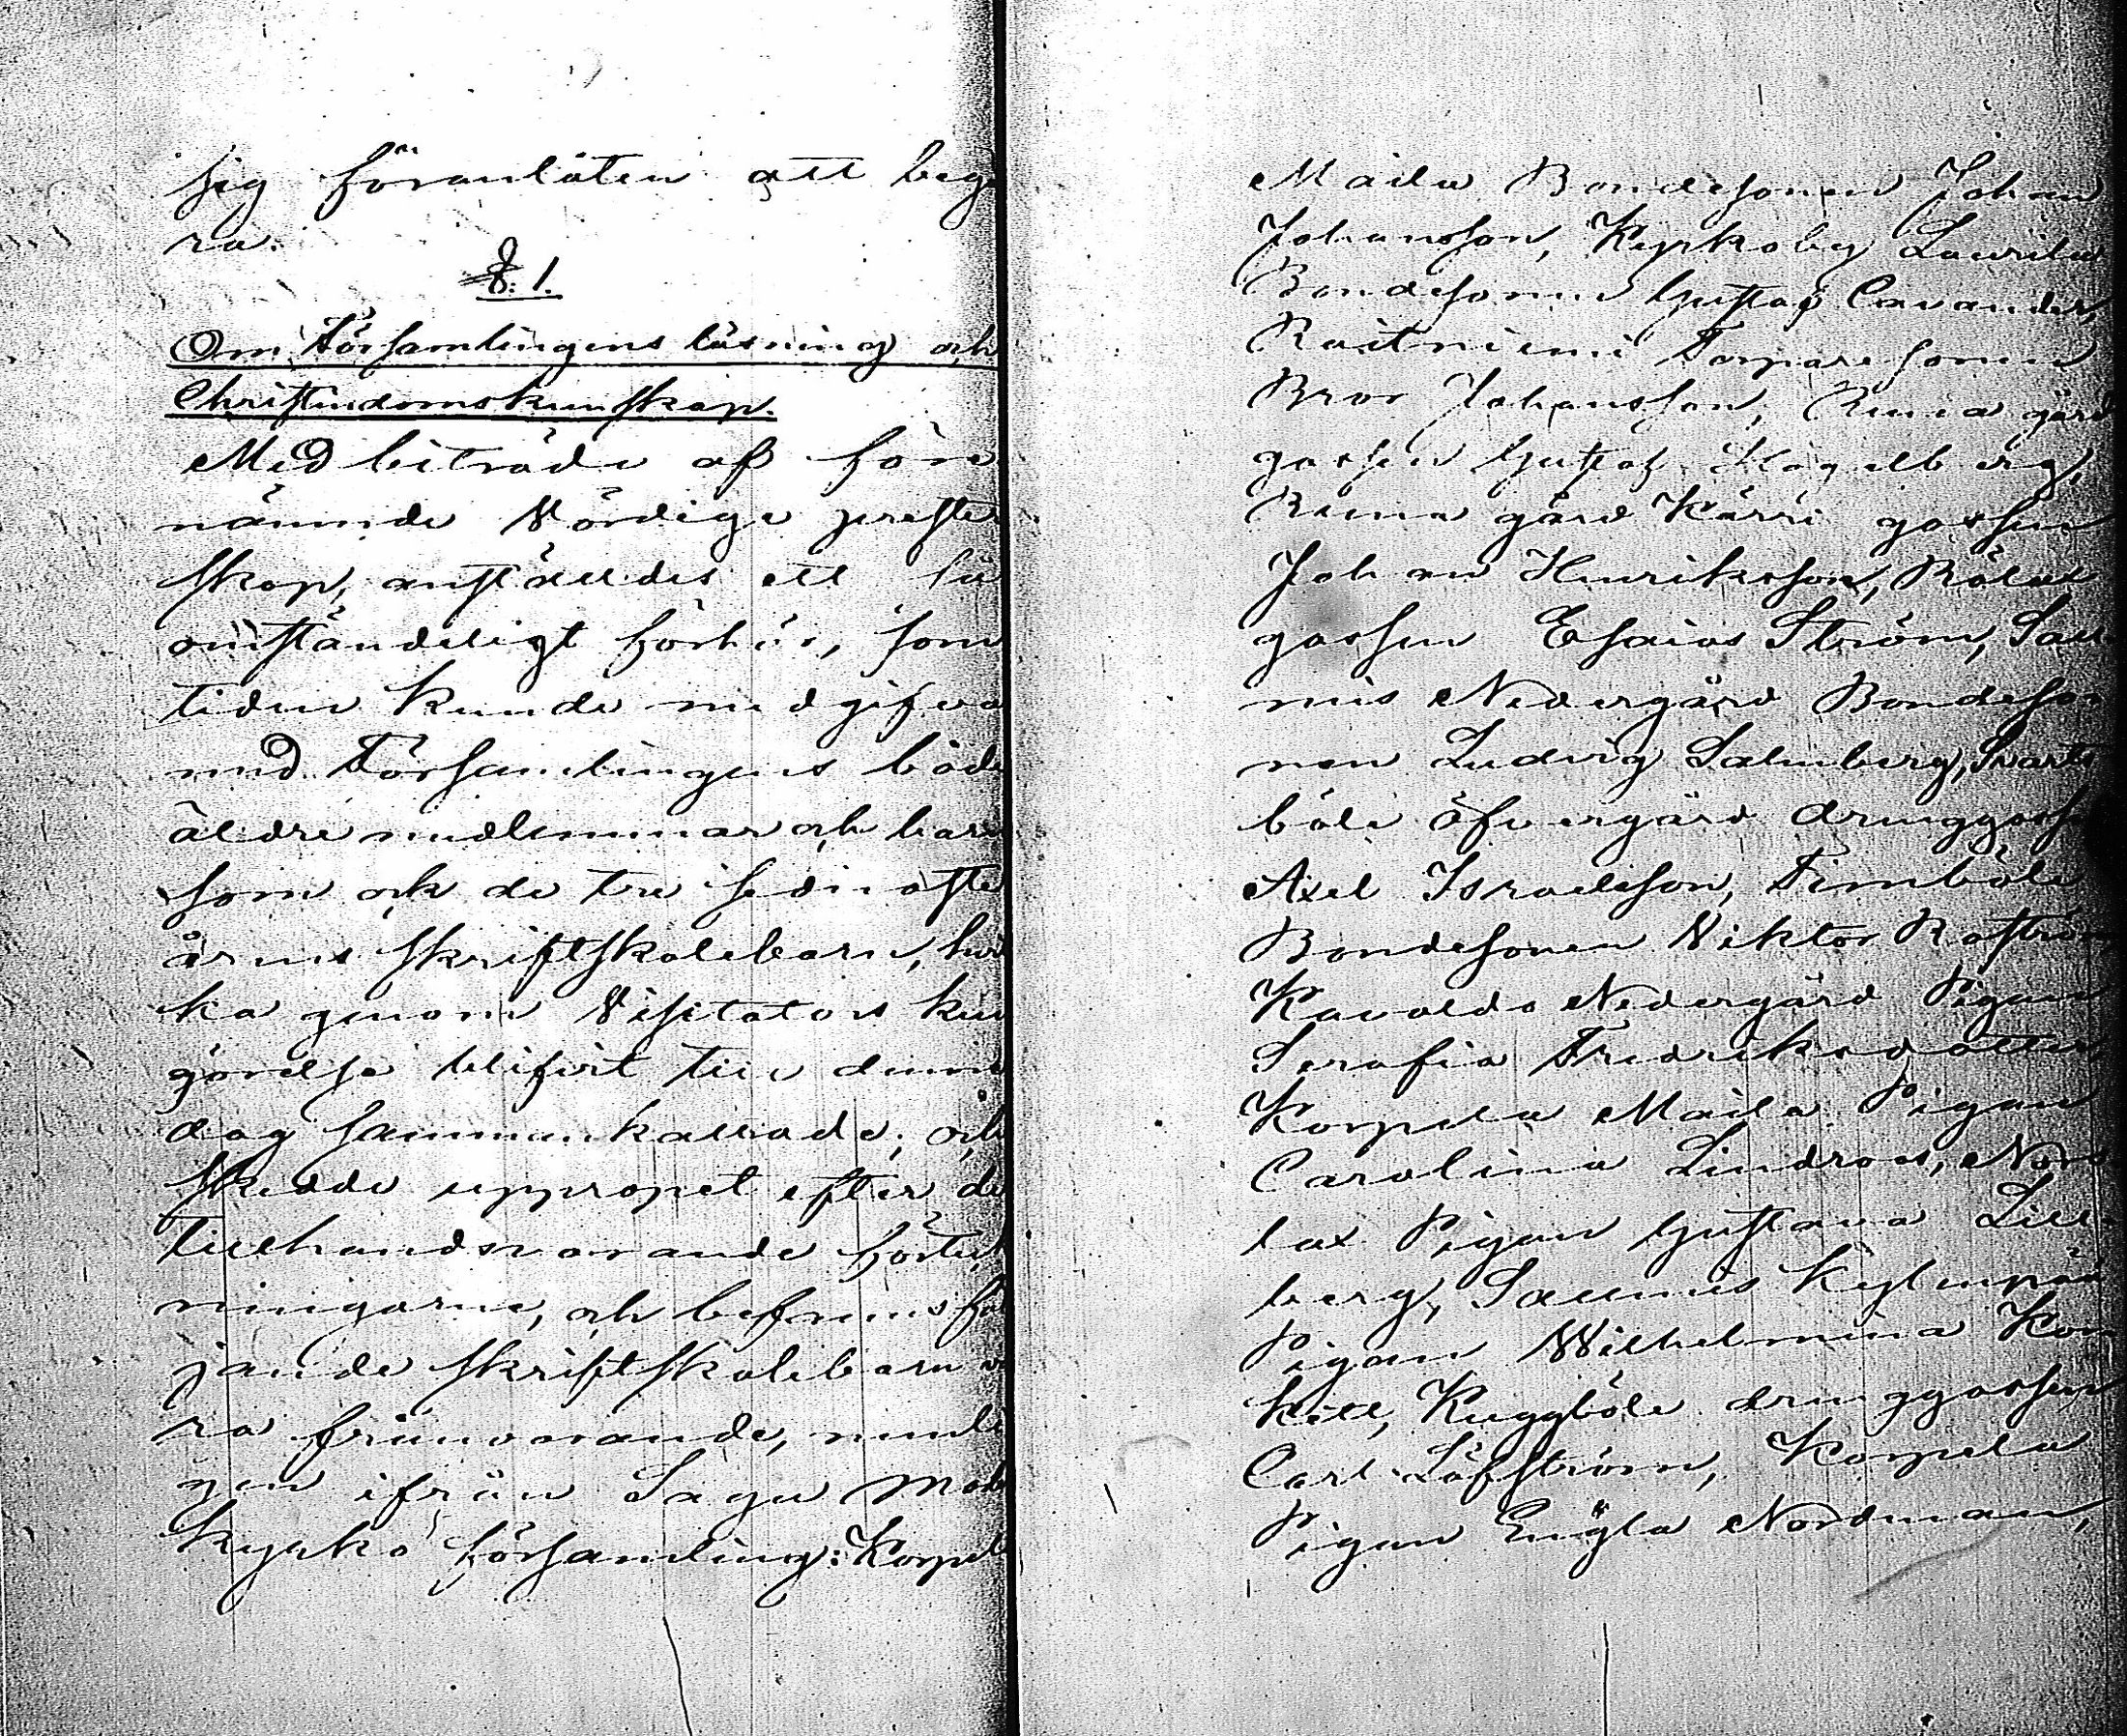 sig föranlåten att begä
ra.
§. 1.
Om Församlingens läsning och
Christendomskunskap.
Med biträde af före
nämnde Vördige prester
skap, anställdes ett så
omständeligt förhör, som
tiden kunde medgifva
med Församlingens både
äldre medlemmar och barn
som ock de tre sednaste
årens skriftskolebarn, hvil
ka genom Visitators kun
görelse blifvit till denna
dag sammankallade; och
skedde uppropet efter de
tillhandsvarande förteck
ningarne, och befunnos föl
jande skriftskolebarn va
ra frånvarande, nemli
gen ifrån Sagu Moder
kyrko församling: Korpela
Maila Bondesonen Johan
Johansson, Kyrkoby Laurila
Bondesonen Gustaf Cavander,
Raitniemi Torparesonen
Bror Johansson, Runa gård
gossen Gustaf Högelberg,
Runa gård Kärri gossen
Johan Henriksson, Rölax
gossen Esaias Ström, Sau
nis Nedergård Bondeso
nen Ludvig Salmberg, Svart
böle öfvergård drenggossen
Axel Israelsson, Timböle
Bondesonen Viktor Roström
Kavaldo Nedergård Pigan
Serafia Fredriksdotter,
Korpela Maila Pigan
Carolina Lindroos, Nord
lax Pigan Gustava Lill
berg, Saunis Kylmpää
Pigan Wilhelmina Kon
kell, Kuggböle drenggossen
Carl Löfström, Korpela
Pigan Engla Nordman,